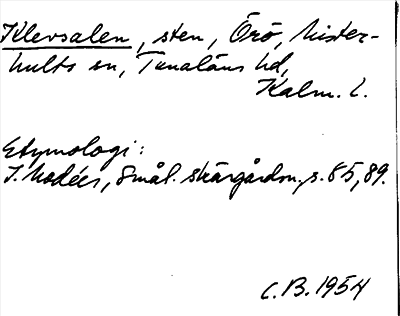 Klevsalen, sten, Örö, Mister-
hults sn, Tunaläns hd,
Kalm. l.
Etymologi:
I. Modéer, Smål. skärgårdsn. s. 85, 89.
C.B. 1954